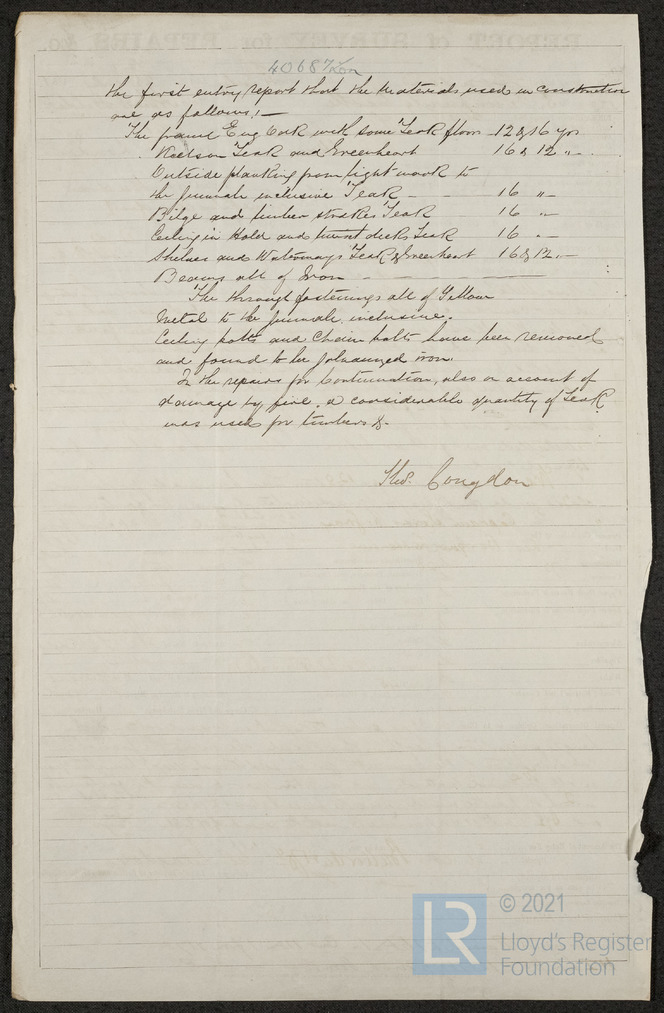 REPORT of SURVEY for REPAIRS &c.
40687 Lon
the first entry report that the Materials used in construction
are as follows; —
The frame Eng Oak with some Teak floors — 12 & 16 yrs
Keelson Teak and Greenheart 16 & 12 "
Outside planking from light mark to
the gunwale inclusive Teak — 16 "
Bilge and limber strakes Teak 16 "
Ceiling in Hold and twixt decks Teak 16 "
Shelves and Waterways Teak & Greenheart 16 & 12 "
Beams all of Iron —
The through fastenings all of Yellow
Metal to the gunwale inclusive.
Ceiling bolts and Chain bolts have been removed
and found to be galvanized iron.
In the repairs for Continuation, also on account of
damage by fire, a considerable quantity of Teak
was used for timbers &.
Thos. Congdon
LR
© 2021
Lloyd's Register
Foundation